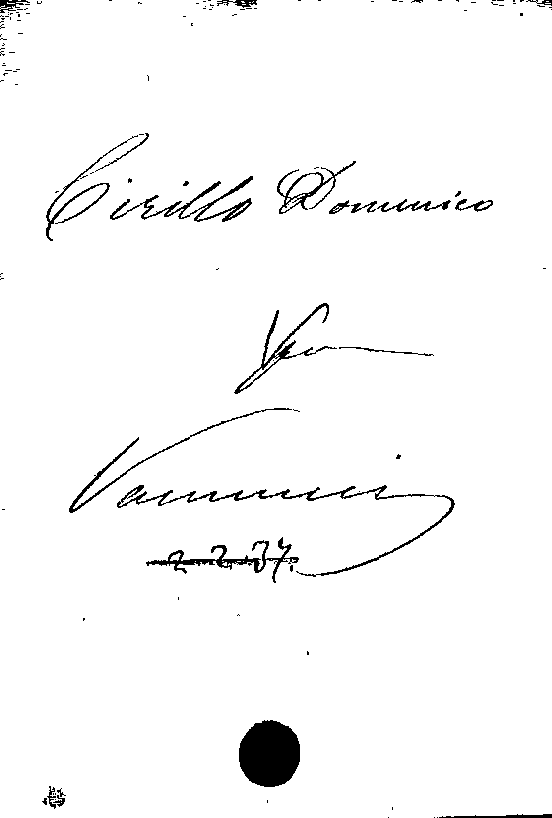 Cirillo Domenico
Vannucci
2.2.37.